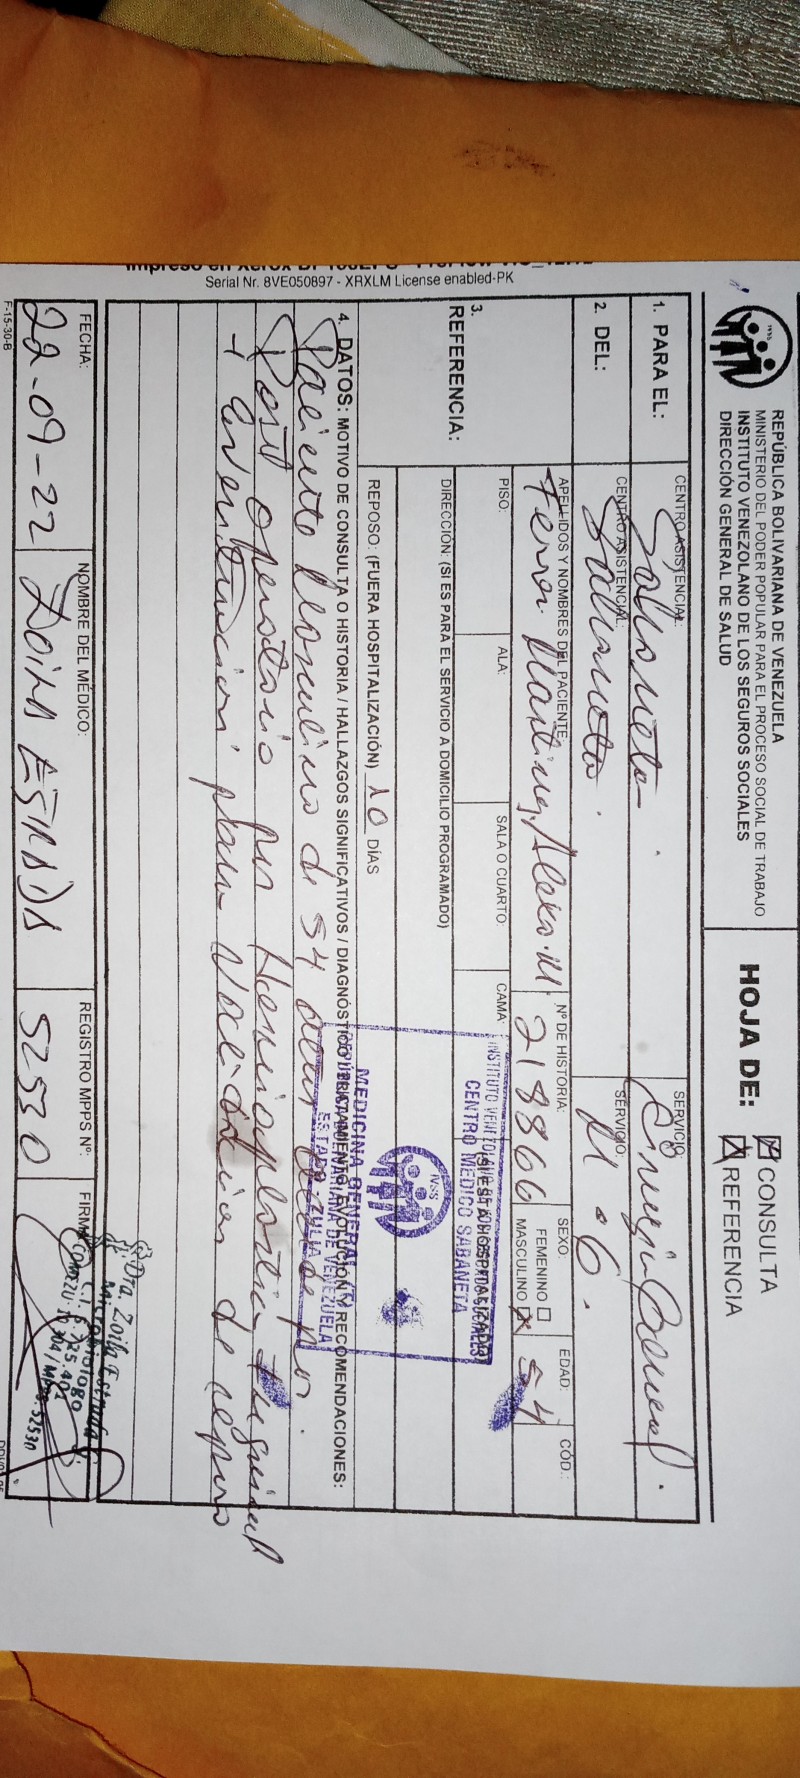 Serial Nr. 8VE050897 - XRXLM License enabled-PK
REPÚBLICA BOLIVARIANA DE VENEZUELA
MINISTERIO DEL PODER POPULAR PARA EL PROCESO SOCIAL DE TRABAJO
INSTITUTO VENEZOLANO DE LOS SEGUROS SOCIALES
DIRECCIÓN GENERAL DE SALUD
HOJA DE:
CONSULTA
REFERENCIA
1. PARA EL:
CENTRO ASISTENCIAL:
Sabaneta
SERVICIO:
Cirugía General.
2. DEL:
CENTRO ASISTENCIAL:
Sabaneta.
SERVICIO:
M.G.
3. REFERENCIA:
APELLIDOS Y NOMBRES DEL PACIENTE:
Ferrer Martinez, Alexo. M
Nº DE HISTORIA:
218866
SEXO:
FEMENINO
MASCULINO X
EDAD:
54
CÓD.:
PISO:
ALA:
SALA O CUARTO:
CAMA:
(SI ES HOSPITALIZADO)
DIRECCIÓN: (SI ES PARA EL SERVICIO A DOMICILIO PROGRAMADO)
REPOSO: (FUERA HOSPITALIZACIÓN) 10 DÍAS
INSTITUTO VENEZOLANO DE LOS SEGUROS SOCIALES
CENTRO MEDICO SABANETA
IVSS
MEDICINA GENERAL
REPÚBLICA BOLIVARIANA DE VENEZUELA
ESTADO ZULIA
4. DATOS: MOTIVO DE CONSULTA O HISTORIA / HALLAZGOS SIGNIFICATIVOS / DIAGNÓSTICO / TRATAMIENTO, EVOLUCIÓN Y RECOMENDACIONES:
Paciente Masculino de 54 años por
Post operatorio por Hernioplastia Inguinal
+ Eventracion para de reposo
FECHA:
22-09-22
NOMBRE DEL MÉDICO:
ZOILA ESTRADA
REGISTRO MPPS Nº:
52530
FIRMA:
Dra. Zoila Estrada
Microbiologo
C.I. 5.725.401
COMEZU 10.304 / MPPS. 52530
F-15-30-B